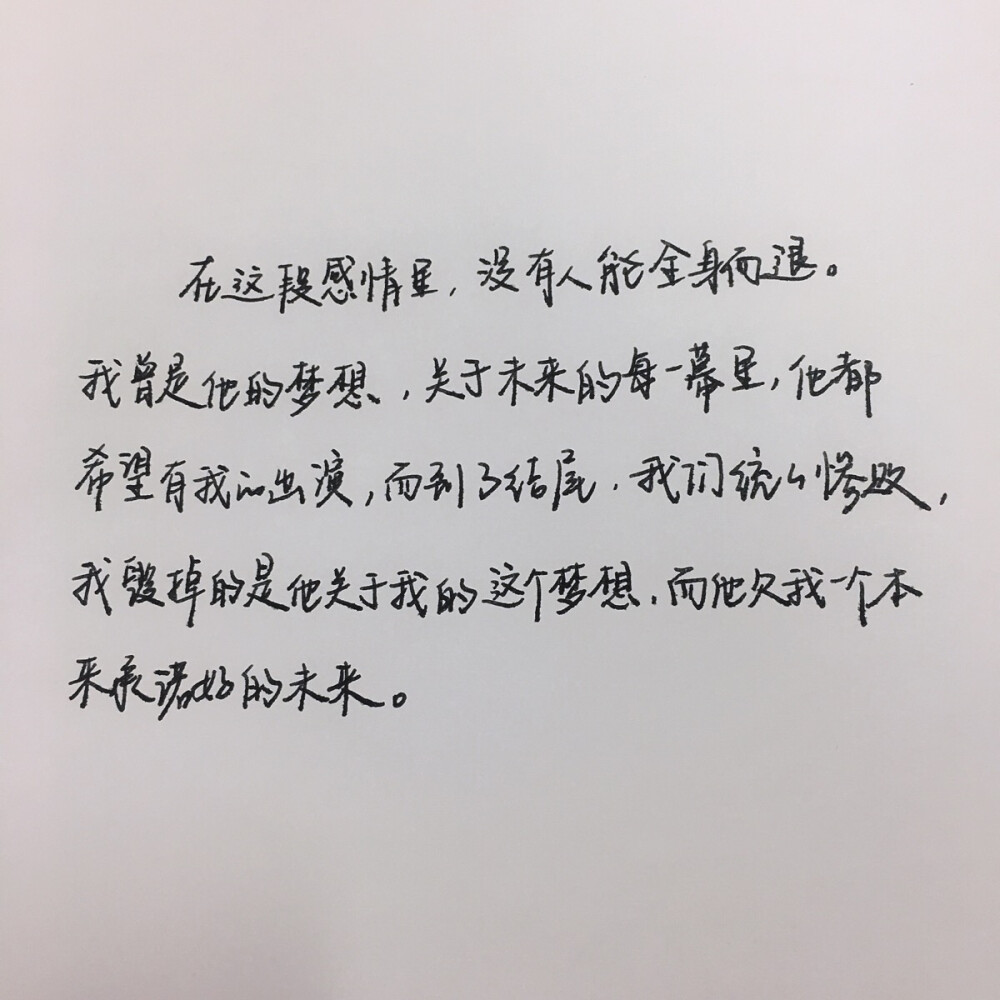 在这段感情里，没有人能全身而退。
我曾是他的梦想，关于未来的每一幕里，他都
希望有我的出演，而到了结尾，我们统统惨败，
我毁掉的是他关于我的这个梦想，而他欠我一个本
来承诺好的未来。